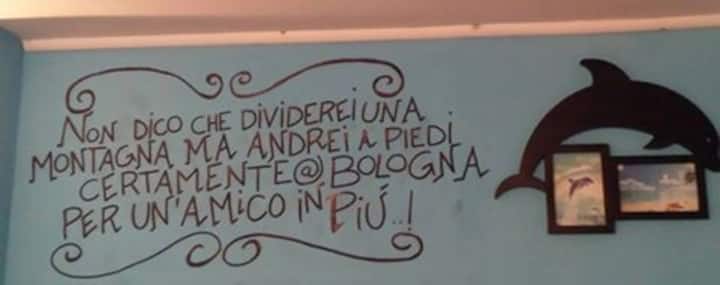 NON DICO CHE DIVIDEREI UNA
MONTAGNA MA ANDREI A PIEDI
CERTAMENTE @ BOLOGNA
PER UN'AMICO IN PIÚ..!